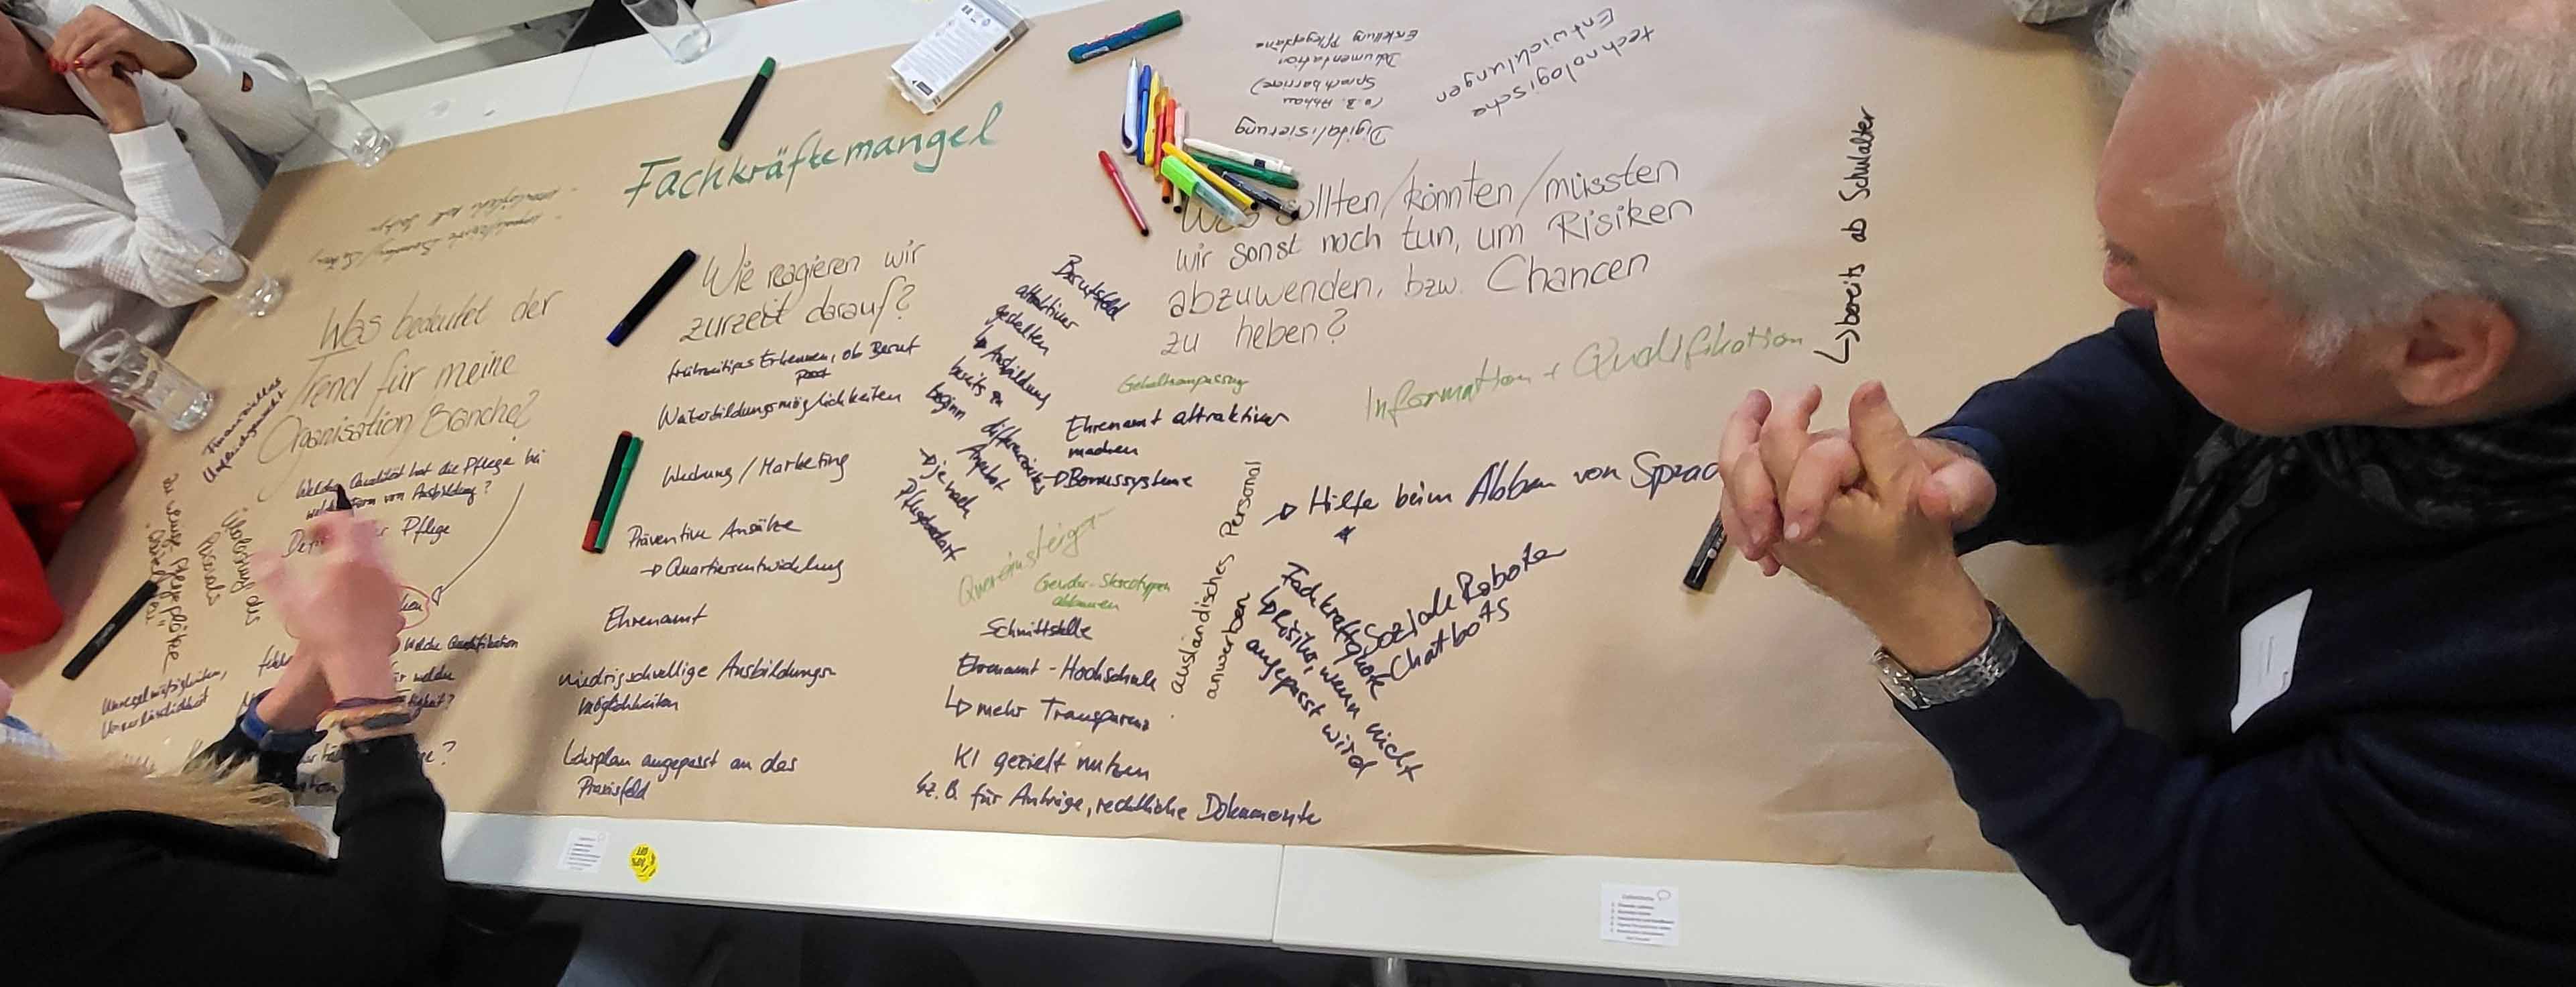 Fachkräftemangel
Was bedeutet der
Trend für meine
Organisation/Branche?
Finanzielles
Welche Qualität hat die Pflege bei
welcher Form von Ausbildung?
Pflege
zu wenige Pflegeplätze
Überlastung des
Personals
Welche Qualifikation
für welche
Tätigkeit?
Unregelmäßigkeiten,
Unverlässlichkeit
Wie reagieren wir
zurzeit darauf?
frühzeitiges Erkennen, ob Beruf
passt
Weiterbildungsmöglichkeiten
Werbung/Marketing
Präventive Ansätze
→ Quartiersentwicklung
Ehrenamt
niedrigschwellige Ausbildungs-
möglichkeiten
Lehrplan angepasst an das
Praxisfeld
Was sollten/könnten/müssten
wir sonst noch tun, um Risiken
abzuwenden, bzw. Chancen
zu heben?
Berufsfeld
attraktiver
gestalten
↳ Ausbildung
bereits zu
Beginn differenzieren
Angebot
→ je nach
Pflegebedarf
Gehaltsanpassung
Ehrenamt attraktiver
machen
→ Bonussysteme
Quereinsteiger
Gender-Stereotypen
abbauen
Schnittstelle
Ehrenamt - Hochschule
↳ mehr Transparenz
KI gezielt nutzen
↳ z.B. für Anträge, rechtliche Dokumente
ausländisches Personal
anwerben
→ Hilfe beim Abbau von Sprac
Fachkraftquote
↳ Risiko, wenn nicht
angepasst wird
Soziale Roboter
Chatbots
Information + Qualifikation
↳ bereits ab Schulalter
technologische
Entwicklungen
Digitalisierung
(z.B. Abbau
Sprachbarriere)
Dokumentation
Erstellung Pflegepläne